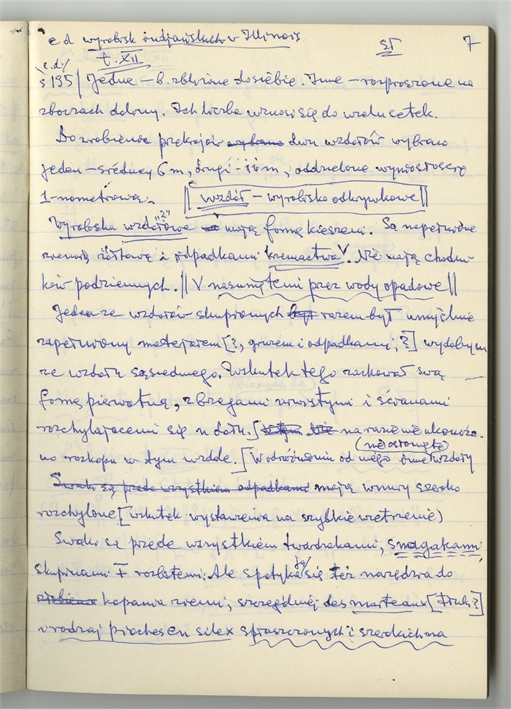 c.d. wyrobisk indjańskich w Illinois
SI 7
t. XII
c.d/
s 195/ Jedne – b. zbliżone do siebie. Inne – rozproszone na
zboczach doliny. Ich liczba wznosi się do wielu setek.
Do zrobienia przekrojów dwu wzdołów wybrano
jeden – średnicy 6 m, drugi – 10 m, oddzielone wyniosłością
1-nometrową. || wzdół – wyrobisko odkrywkowe ||
Wyrobiska wzdołowe "2" mają formę kieszeni. Są napełnione
ziemią żółtawą i odpadkami krzemactwa V. Nie mają chodni-
ków podziemnych. || V nasuniętemi przez wody opadowe ||
Jeden ze wzdołów skupionych razem był umyślnie
zapełniony materjałem [?, gruzem i odpadkami, ?] wydobytym
ze wzdołu sąsiedniego. Wskutek tego zachował swą
formę pierwotną, z brzegami urwistymi i ścianami
rozchylającemi się u dołu. [ na razie nie ukończo-
no rozkopu w tym wzdole. ] W odróżnieniu od niego inne (nieosłonięte) wzdoły
Swaki są przede wszystkiem odpadkami mają wnury szeroko
rozchylone [wskutek wystawienia na szybkie wietrzenie)
Swaki są przede wszystkiem twardzakami, smagakami,
skupinami ∓ rozbitemi. Ale spotyka się też narzędzia do
kopania ziemi, szczególniej des marteaux [tłuk?]
w rodzaj pioches en silex spłaszczonych i szerokich na